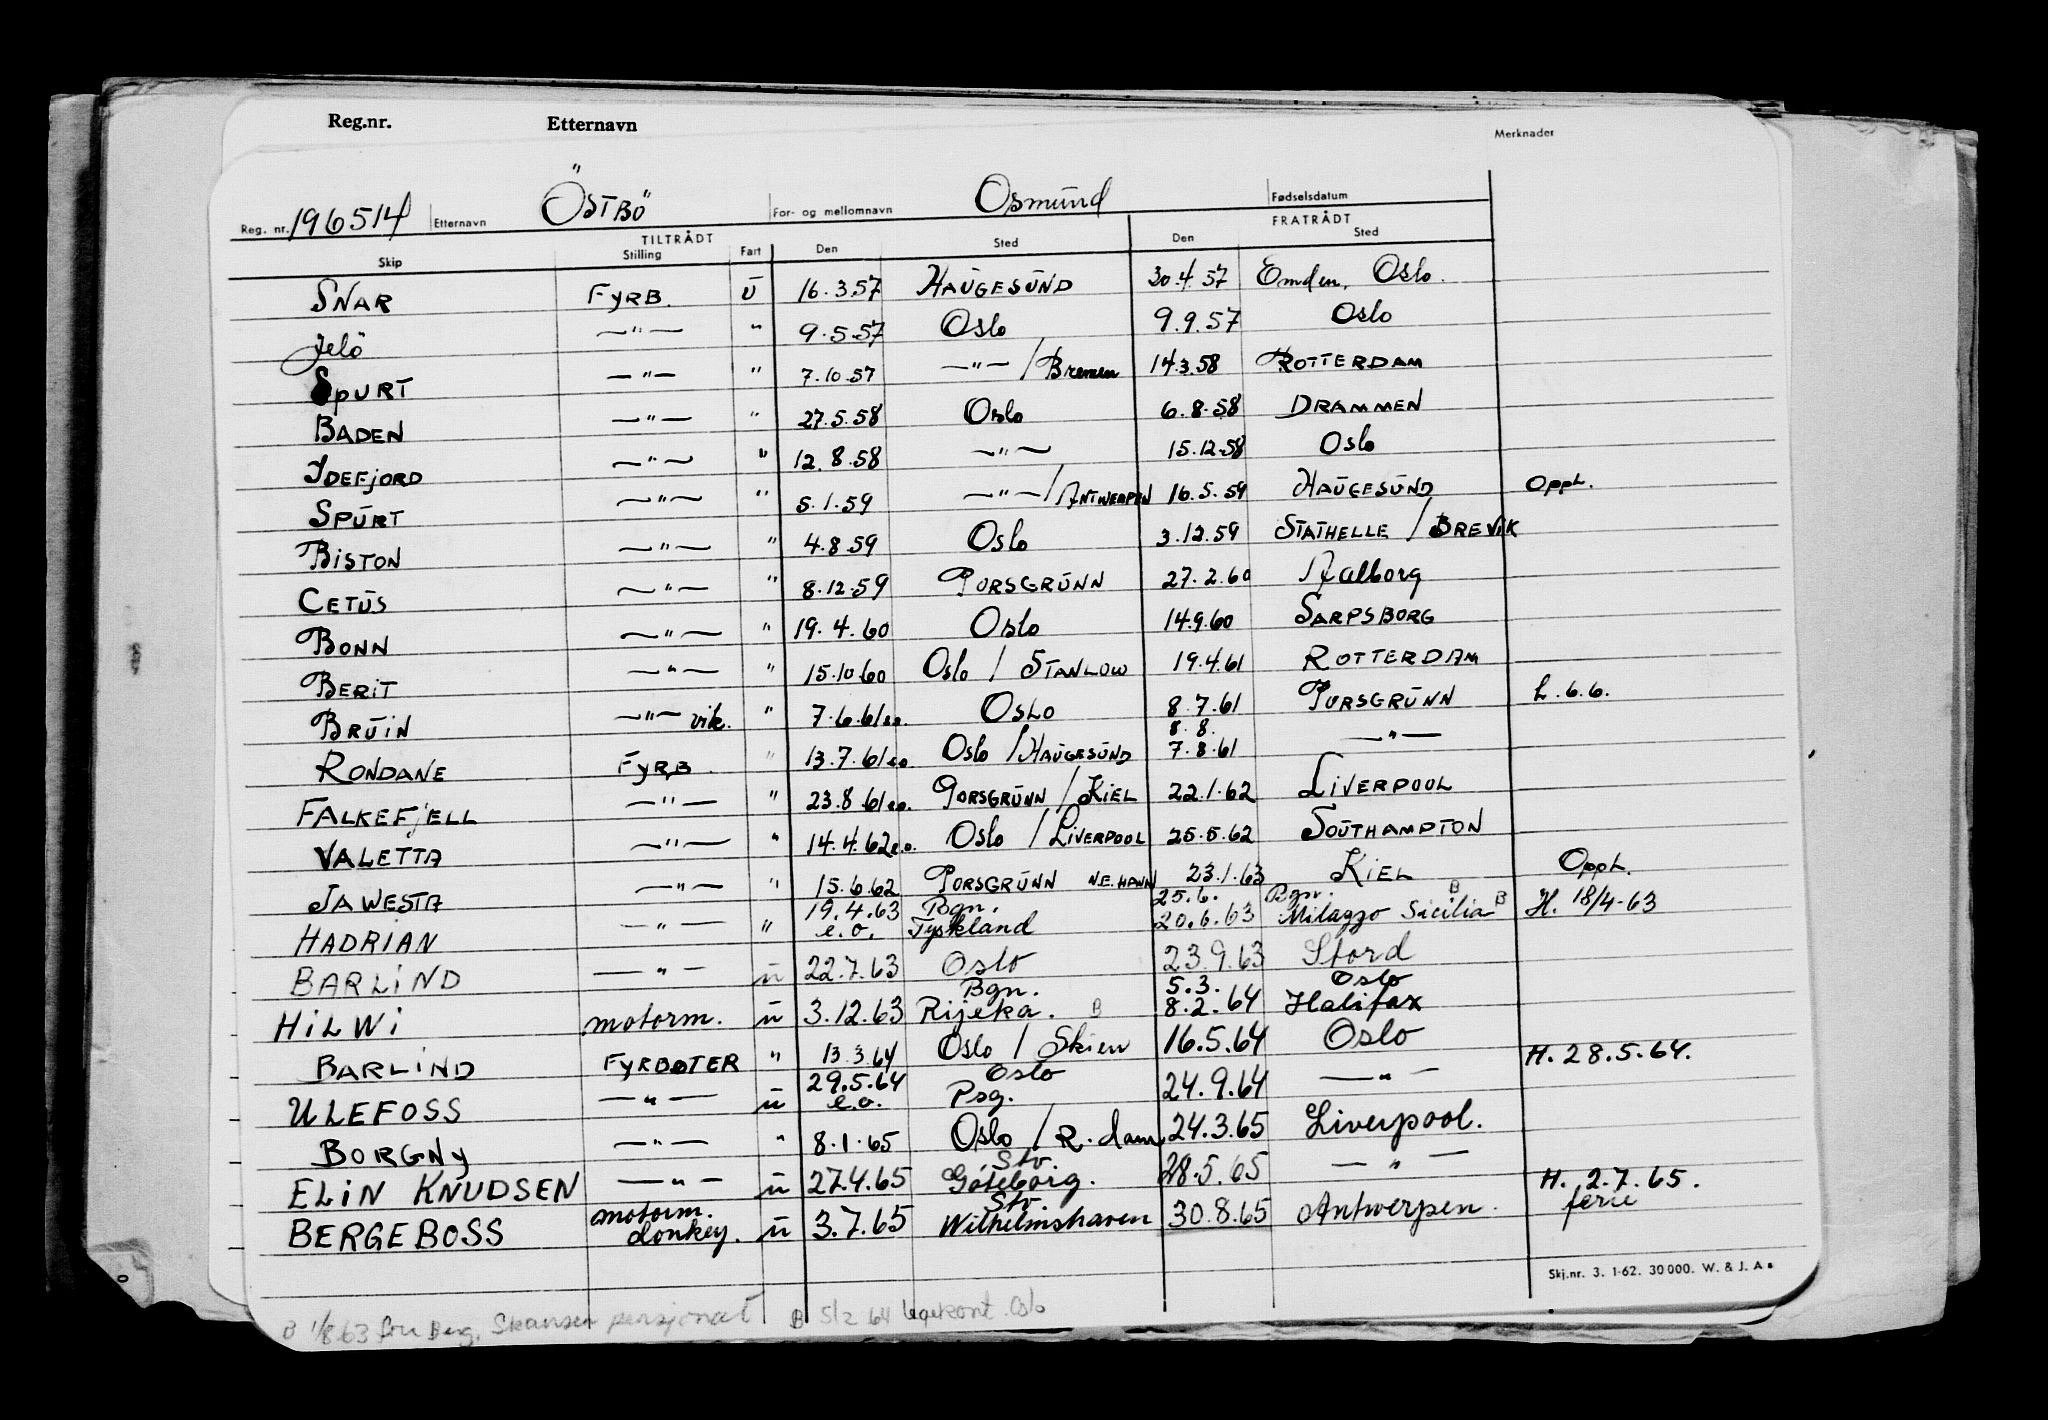 Reg.nr. Etternavn
Merknader
Reg. nr. 196514 Etternavn ÖSTBÖ For- og mellomnavn Osmund Fødselsdatum
TILTRÅDT FRATRÅDT
Skip Stilling Fart Den Sted Den Sted
SNAR FYRB. U 16.3.57 HAUGESUND 30.4.57 Emden, Oslo.
Jelö —"— " 9.5.57 Oslo 9.9.57 Oslo
SPURT —"— " 7.10.57 —"— / Bremen 14.3.58 ROTTERDAM
BADEN —"— " 27.5.58 Oslo 6.8.58 DRAMMEN
IDEFJORD —"— " 12.8.58 —"— 15.12.58 Oslo
SPURT —"— " 5.1.59 —"— / ANTWERPEN 16.5.59 HAUGESUND Opph.
BISTON —"— " 4.8.59 Oslo 3.12.59 STATHELLE / BREVIK
CETUS —"— " 8.12.59 PORSGRUNN 27.2.60 Aalborg
BONN —"— " 19.4.60 Oslo 14.9.60 SARPSBORG
BERIT —"— " 15.10.60 Oslo / STANLOW 19.4.61 ROTTERDAM
BRUIN —"— vik. " 7.6.61 e.o. OSLO 8.7.61 PORSGRUNN L.6.6.
RONDANE FYRB. " 13.7.61 e.o. Oslo / HAUGESUND 8.8. 7.8.61 —"—
FALKEFJELL —"— " 23.8.61 e.o. PORSGRUNN / KIEL 22.1.62 LIVERPOOL
VALETTA —"— " 14.4.62 e.o. Oslo / LIVERPOOL 25.5.62 SOUTHAMPTON
JAWESTA —"— " 15.6.62 PORSGRUNN N.E.HAWN 23.1.63 KIEL Opph.
HADRIAN —"— " 19.4.63 e.o. Bgn. Tyskland 25.6. 20.6.63 Bgn. B Milazzo Sicilia B H. 18/4-63
BARLIND —"— u 22.7.63 Oslo 23.9.63 Stord
HILWI motorm. u 3.12.63 Bgn. Rijeka. B 5.3. 8.2.64 Oslo Halifax
BARLIND FYRBØTER " 13.3.64 Oslo / Skien 16.5.64 Oslo
ULEFOSS —"— u 29.5.64 e.o. Oslo Psg. 24.9.64 —"— H. 28.5.64.
BORGNY —"— " 8.1.65 Oslo / R.dam 24.3.65 Liverpool.
ELIN KNUDSEN —"— u 27.4.65 Stv. Göteborg. 28.5.65 —"—
BERGEBOSS motorm. donkey. u 3.7.65 Stv Wilhelmshaven 30.8.65 Antwerpen. H. 2.7.65. ferie
Skj.nr. 3. 1-62. 30 000. W. & J. A s
B 1/8 63 fru Berg, Skansen pensjonat B 5/2 64 legekont. Oslo